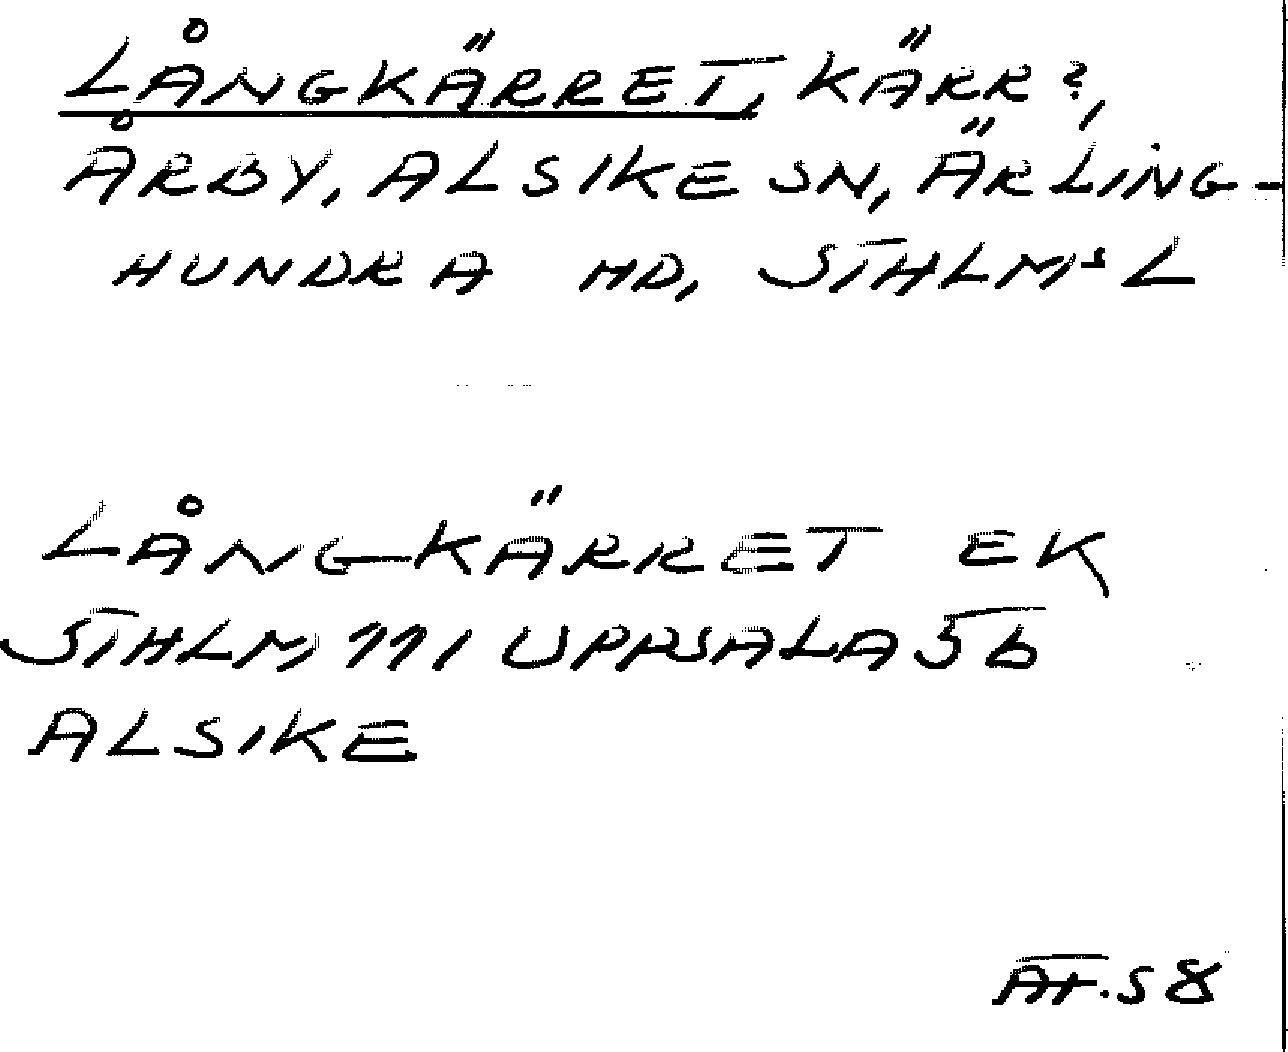 LÅNGKÄRRET, KÄRR?,
ÅRBY, ALSIKE SN, ÄRLING-
HUNDRA HD, STHLMS L
LÅNGKÄRRET EK
STHLM 111 UPPSALA 5b
ALSIKE
AT. S 8